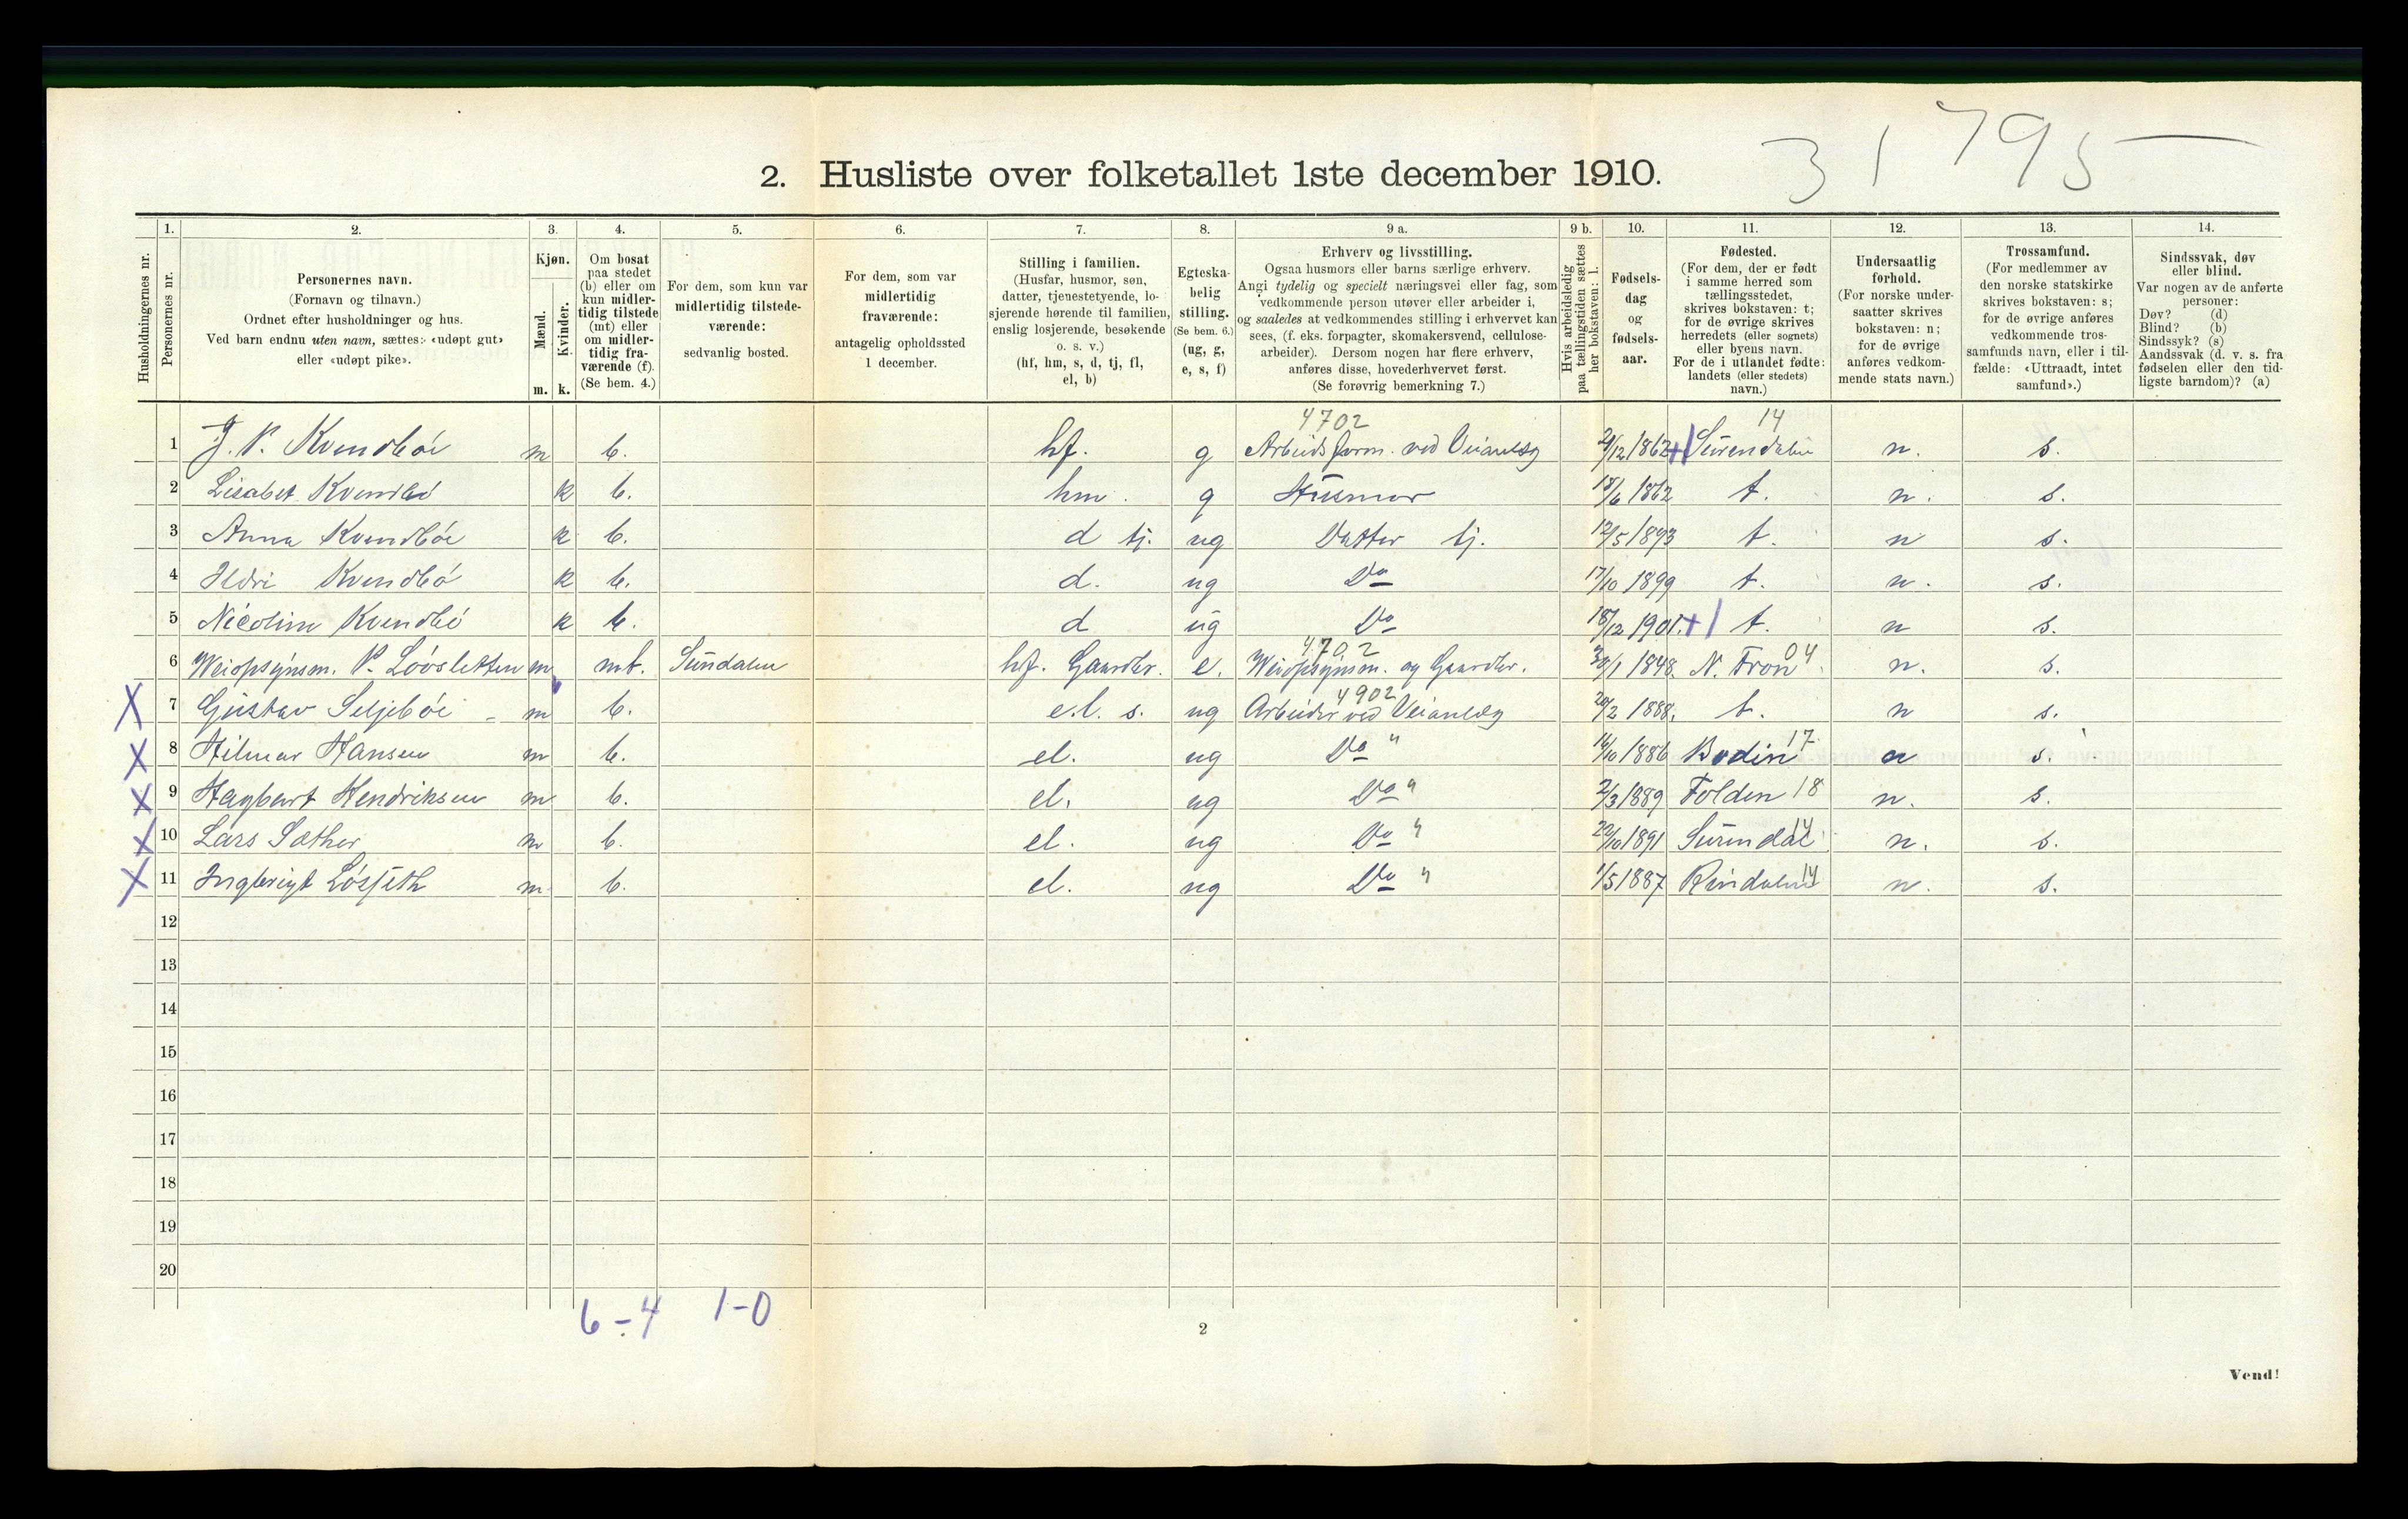 31795
2. Husliste over folketallet 1ste december 1910.
Husholdningernes nr.
1.
Personernes nr.
2.
Personernes navn.
(Fornavn og tilnavn.)
Ordnet efter husholdninger og hus.
Ved barn endnu uten navn, sættes: «udøpt gut»
eller «udøpt pike».
3.
Kjøn.
Mænd.
Kvinder.
m. k.
4.
Om bosat
paa stedet
(b) eller om
kun midler-
tidig tilstede
(mt) eller
om midler-
tidig fra-
værende (f).
(Se bem. 4.)
5.
For dem, som kun var
midlertidig tilstede-
værende:
sedvanlig bosted.
6.
For dem, som var
midlertidig
fraværende:
antagelig opholdssted
1 december.
7.
Stilling i familien.
(Husfar, husmor, søn,
datter, tjenestetyende, lo-
sjerende hørende til familien,
enslig losjerende, besøkende
o. s. v.)
(hf, hm, s, d, tj, fl,
el, b)
8.
Egteska-
belig
stilling.
(Se bem. 6.)
(ug, g,
e, s, f)
9 a.
Erhverv og livsstilling.
Ogsaa husmors eller barns særlige erhverv.
Angi tydelig og specielt næringsvei eller fag, som
vedkommende person utøver eller arbeider i,
og saaledes at vedkommendes stilling i erhvervet kan
sees, (f. eks. forpagter, skomakersvend, cellulose-
arbeider). Dersom nogen har flere erhverv,
anføres disse, hovederhvervet først.
(Se forøvrig bemerkning 7.)
9 b.
Hvis arbeidsledig
paa tællingstiden sættes
her bokstaven: l.
10.
Fødsels-
dag
og
fødsels-
aar.
11.
Fødested.
(For dem, der er født
i samme herred som
tællingsstedet,
skrives bokstaven: t;
for de øvrige skrives
herredets (eller sognets)
eller byens navn.
For de i utlandet fødte:
landets (eller stedets)
navn.)
12.
Undersaatlig
forhold.
(For norske under-
saatter skrives
bokstaven: n;
for de øvrige
anføres vedkom-
mende stats navn.)
13.
Trossamfund.
(For medlemmer av
den norske statskirke
skrives bokstaven: s;
for de øvrige anføres
vedkommende tros-
samfunds navn, eller i til-
fælde: «Uttraadt, intet
samfund».)
14.
Sindssvak, døv
eller blind.
Var nogen av de anførte
personer:
Døv? (d)
Blind? (b)
Sindssyk? (s)
Aandssvak (d. v. s. fra
fødselen eller den tid-
ligste barndom)? (a)
4702 14
1 J. P. Kvendbøe m b. hf. g Arbeidsform. ved Veianlæg 2/12 1862 +1 Surendalen n. s.
2 Lisabet Kvendbø k b. hm. g Husmor 18/6 1862 t. n. s.
3 Anna Kvendbøe k b. d tj. ug Datter tj. 12/5 1893 t. n s.
4 Ildri Kvendbø k b. d. ug Do 17/10 1899 t. n. s.
5 Nicoline Kvendbø k b. d ug Do 18/12 1901. +1 t. n s.
4702 04
6 Weiopsynsm. P. Løøsletten m mt. Sundalen hf. Gaardbr. e. Weiopsynsm. og Gaardbr. 30/1 1848. N. Fron n. s.
4902
X 7 Gustav Seljebøe m b. e.l. s. ug Arbeider ved Veianlæg 20/2 1888. t. n s.
X 8 Hilmar Hansen m b. el. ug Do " 14/10 1886 Bodin 17 n s.
X 9 Hagbart Hendriksen m b. el. ug Do " 2/3 1889 Folden 18 n. s.
X 10 Lars Sæther m b. el. ug Do " 22/10 1891 Surendal 14 n. s.
X 11 Ingbrigt Løsseth m b. el. ug Do " 1/5 1887 Rindalen 14 n. s.
12
13
14
15
16
17
18
19
20
6-4 1-0
2
Vend!